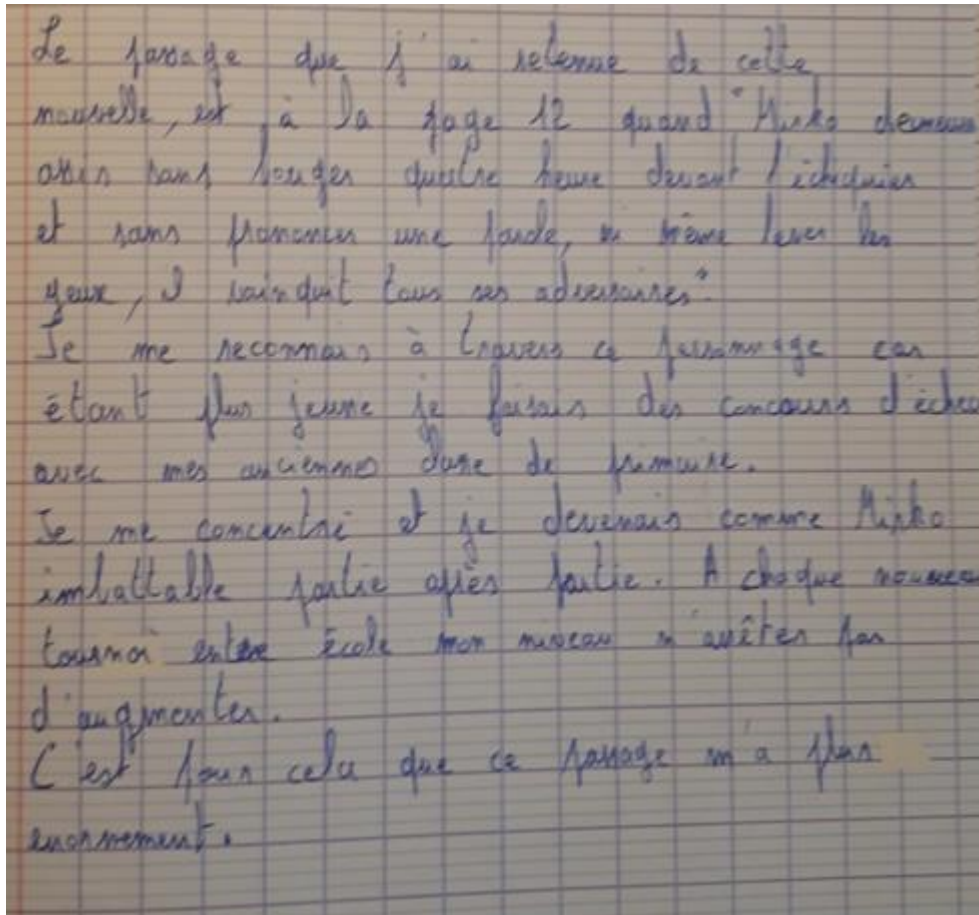 Le passage que j'ai retenue de cette
nouvelle, est à la page 12 quand "Mirko demeura
assis sans bouger quatre heure devant l'échiquier
et sans prononcer une parole, ou même lever les
yeux, il vainquit tous ses adversaires".
Je me reconnais à travers ce personnage car
étant plus jeune je faisais des concours d'échec
avec mes anciennes de primaire.
Je me concentré et je devenais comme Mirko
imbattable partie après partie. A chaque nouveau
tournoi entre école mon niveau n'arrêter pas
d'augmenter.
C'est pour cela que ce passage m'a plus
enormement.